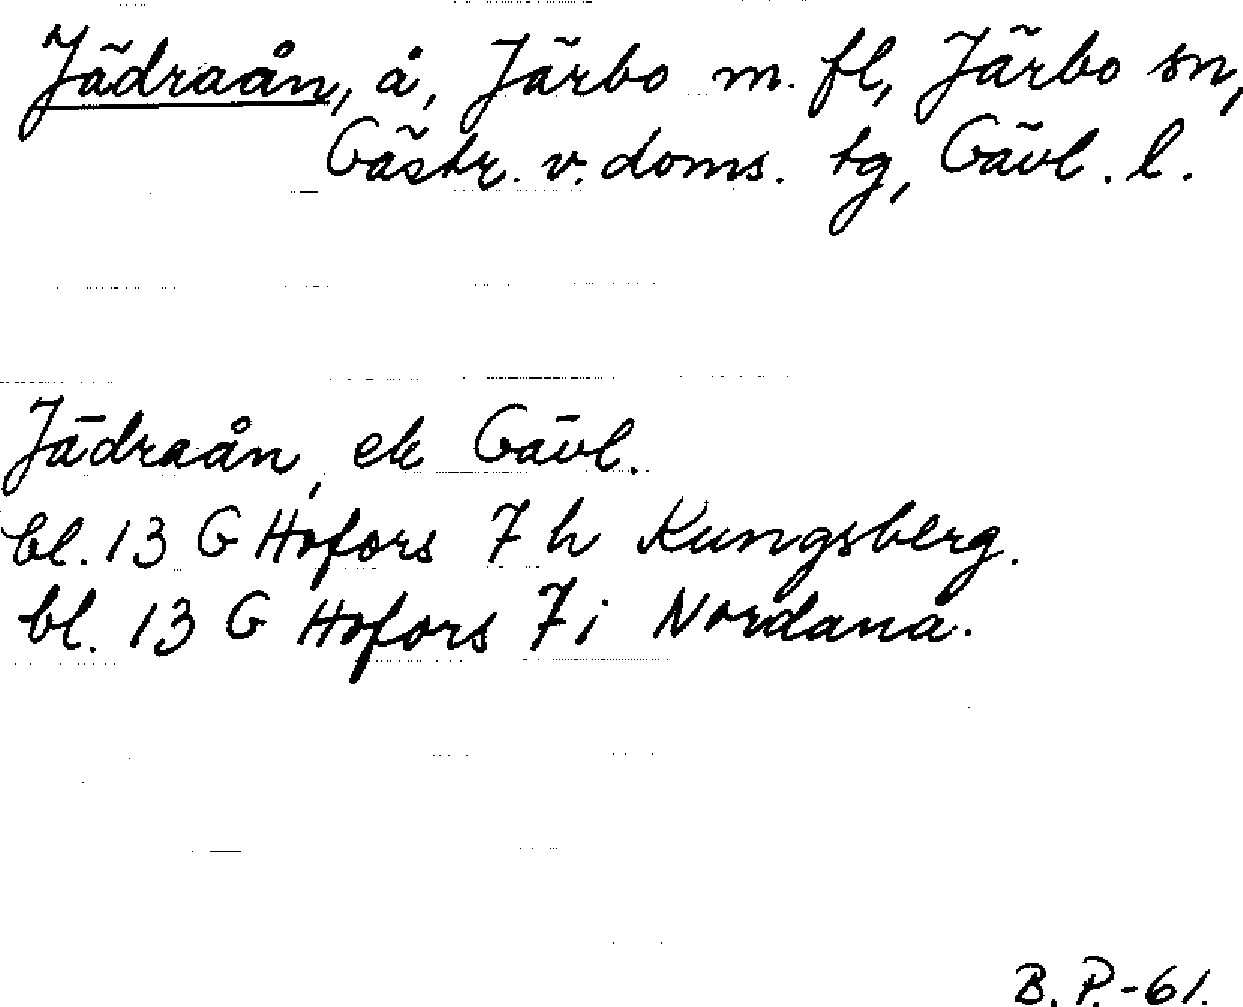 Jädraån, å, Järbo m. fl, Järbo sn,
Gästr. v. doms. tg, Gävl. l.
Jädraån, ek Gävl.
bl. 13 G Hofors 7 h Kungsberg.
bl. 13 G Hofors 7 i Nordanå.
B. P. -61.